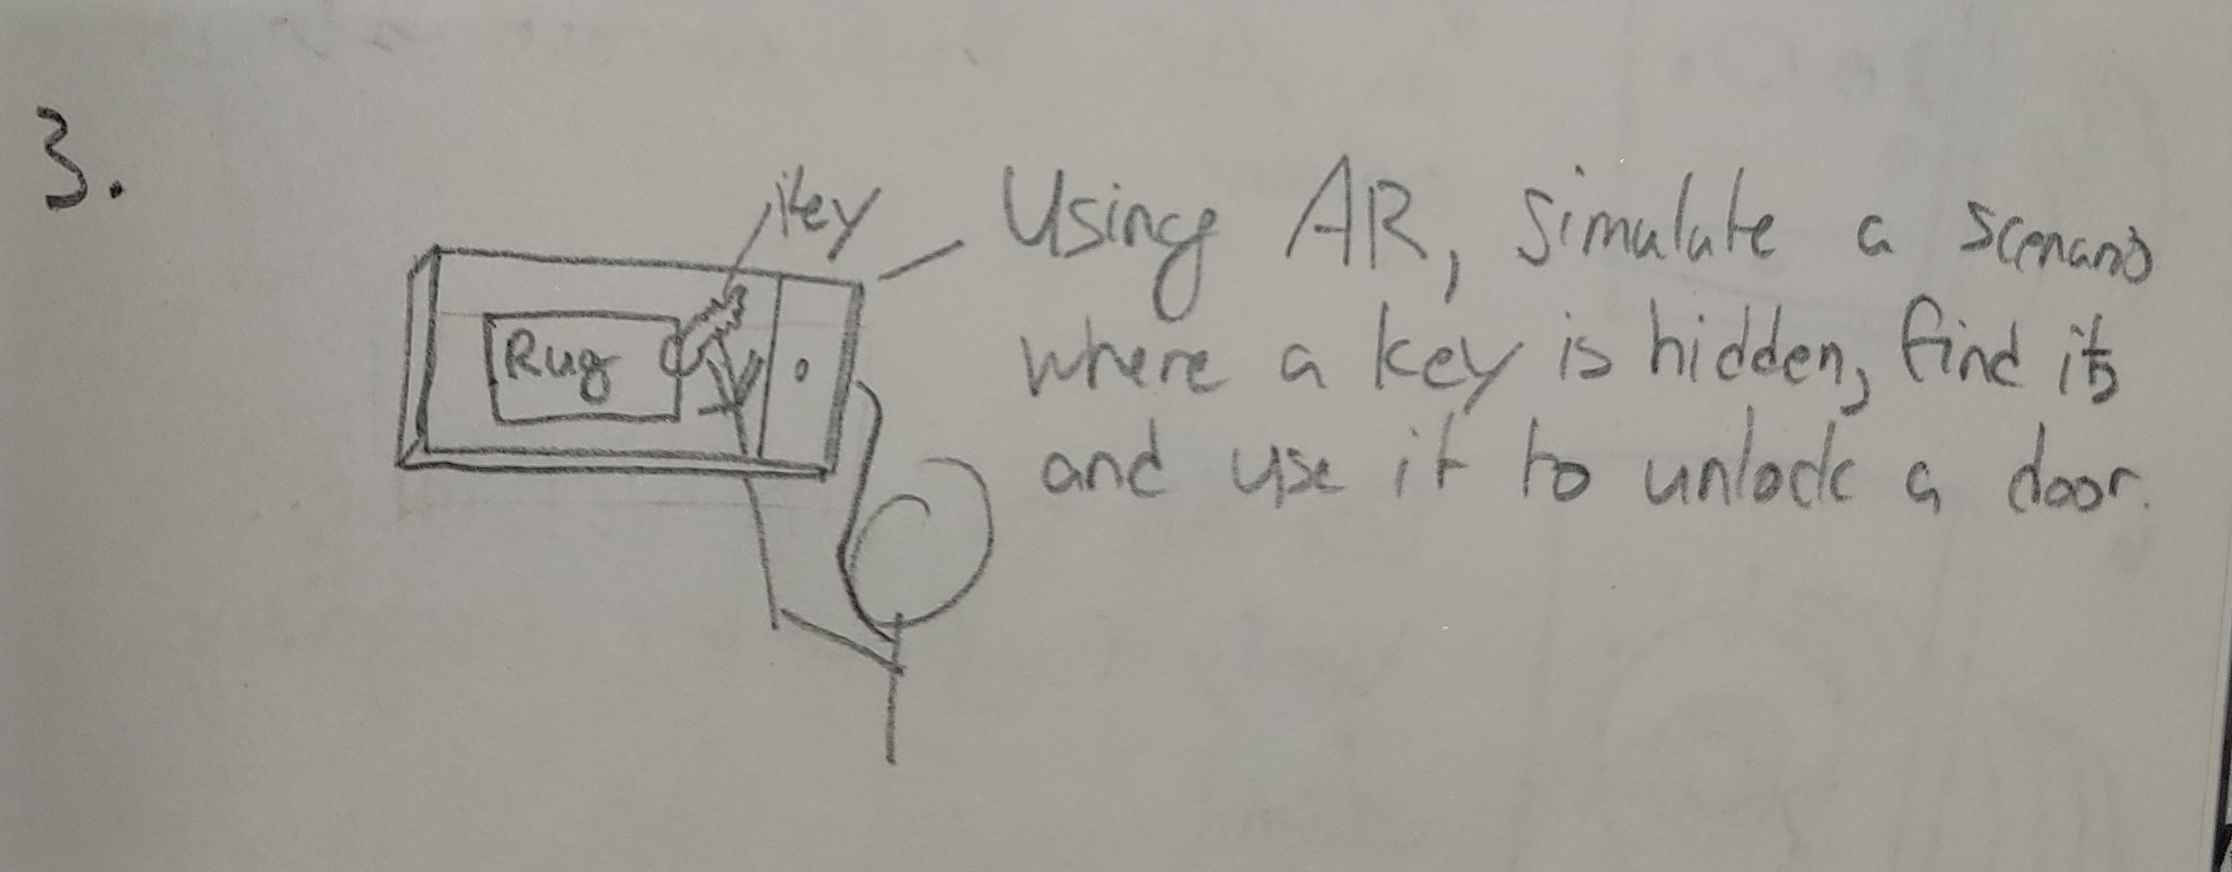 3.
Key
Using AR, simulate a scenario
where a key is hidden, find it,
Rug
and use it to unlock a door.